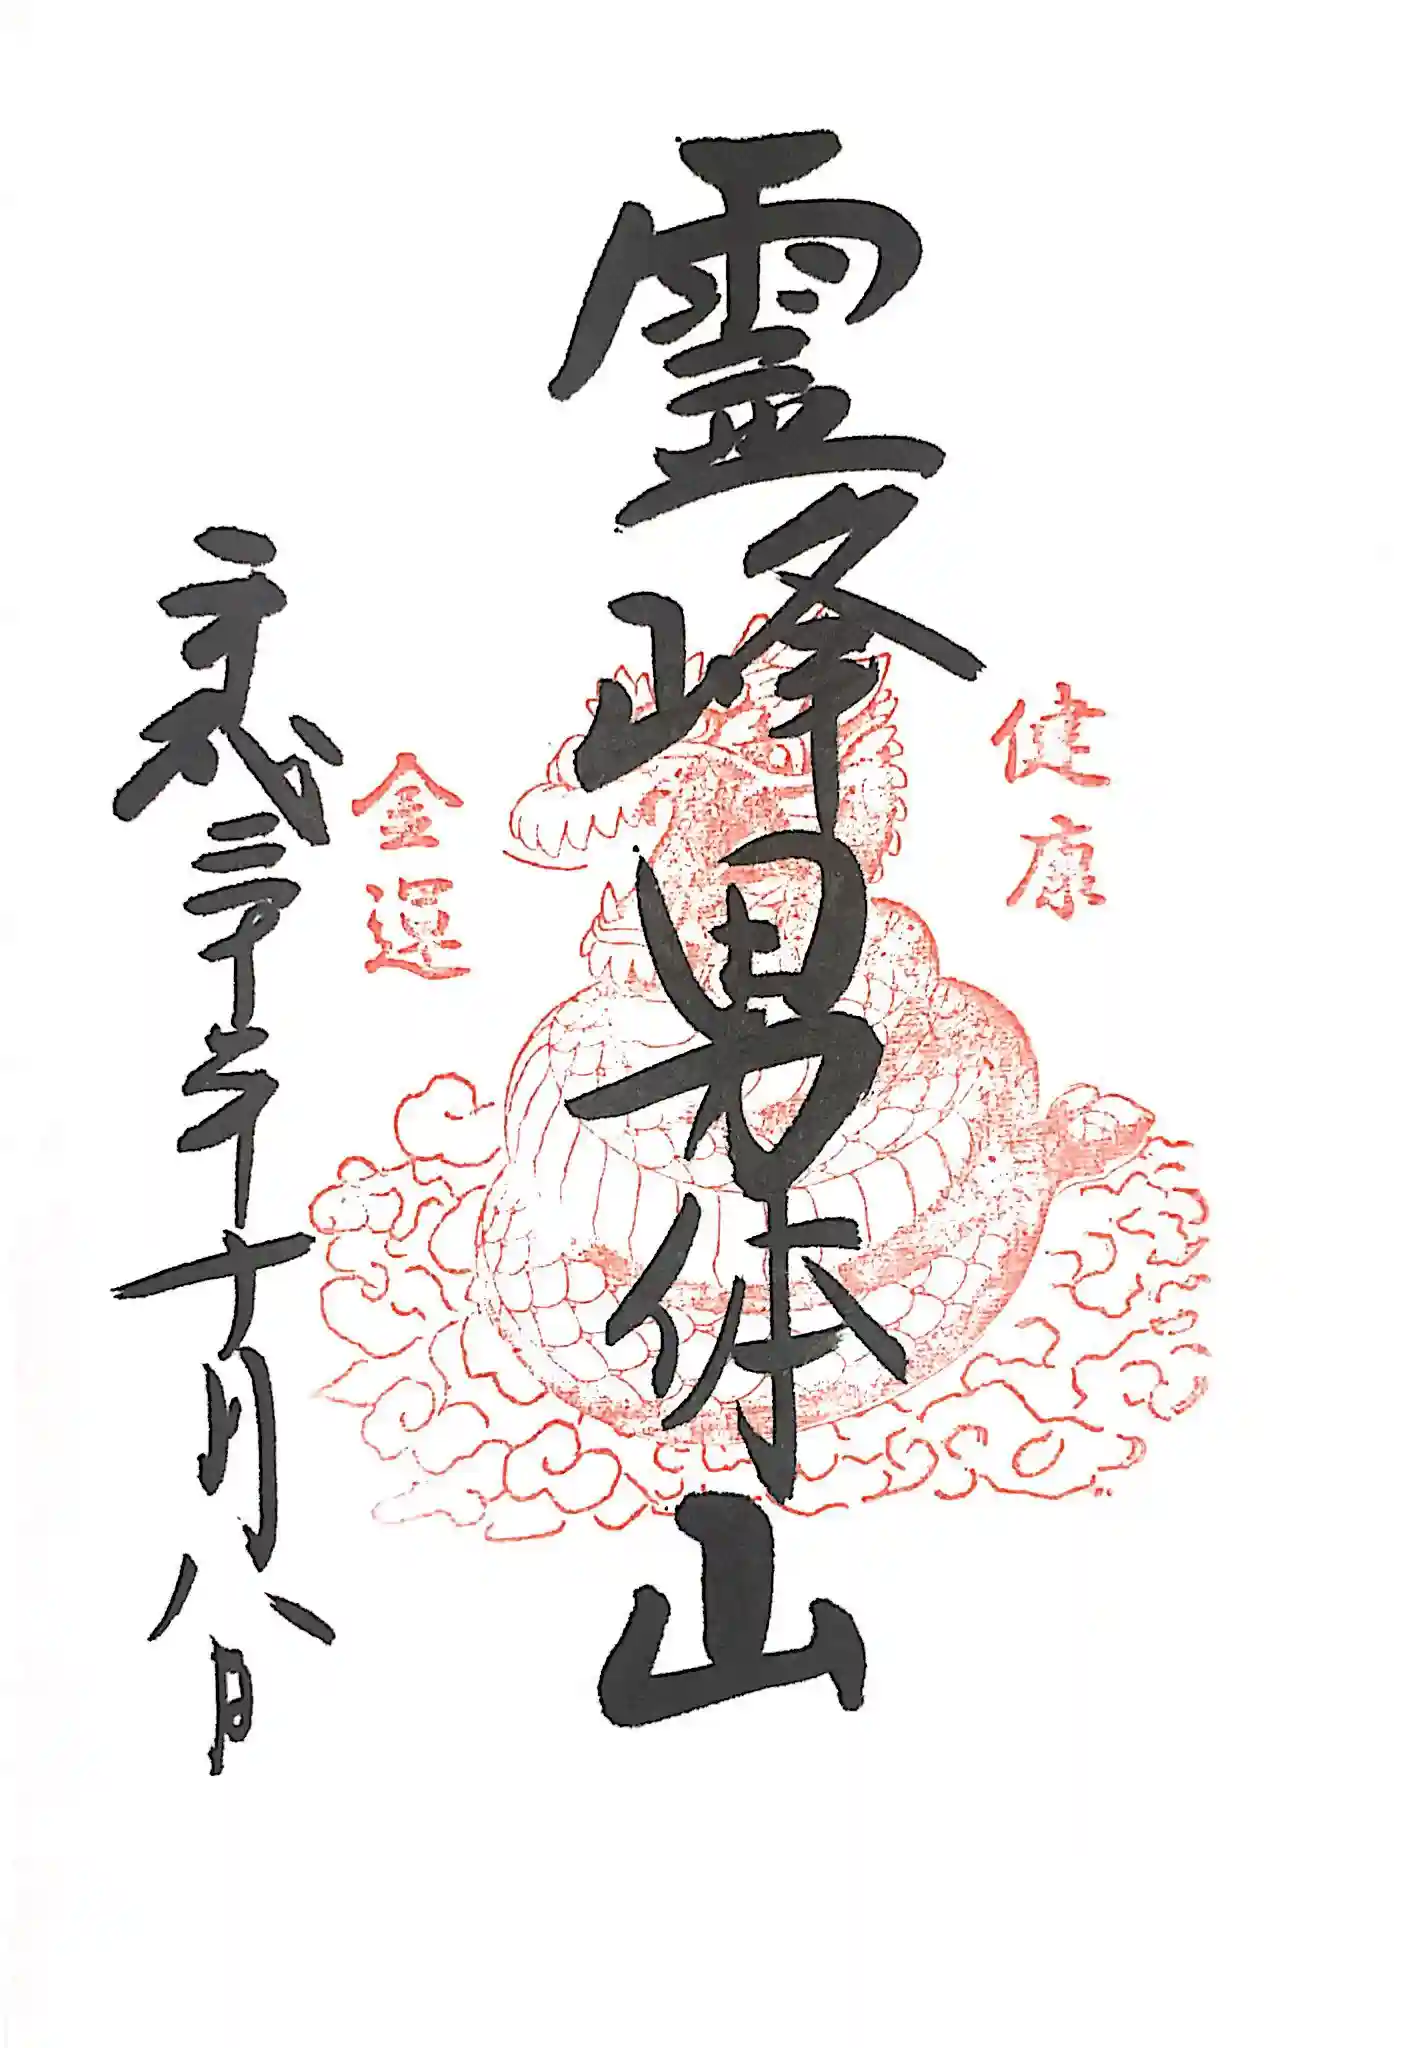 健康
霊峰男体山
金運
平成三十年十月八日